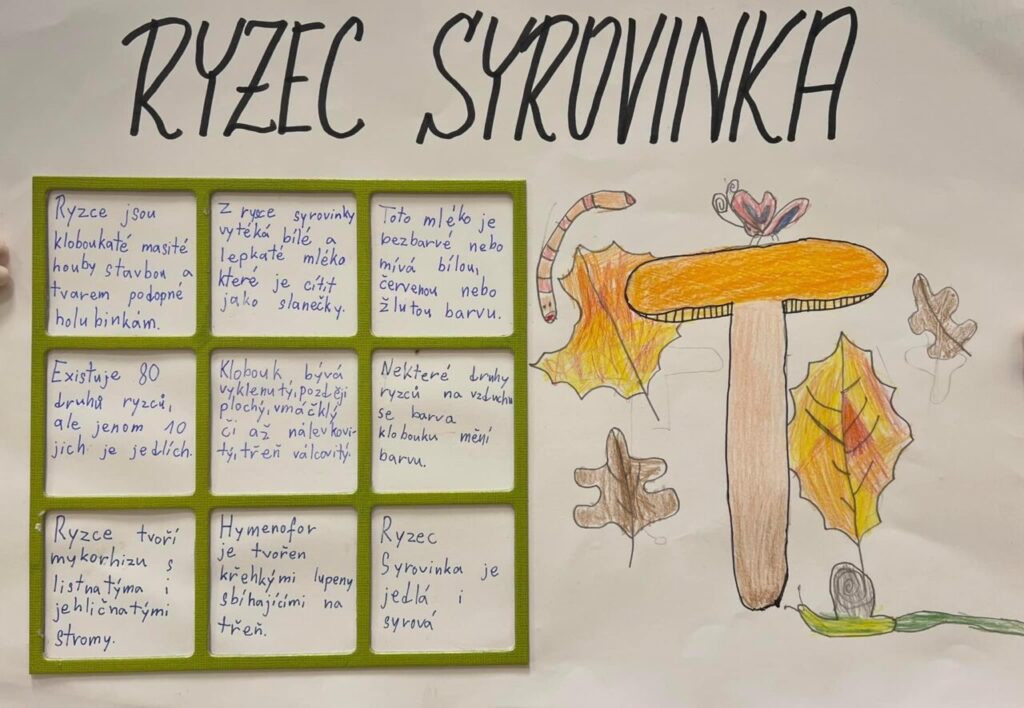 RYZEC SYROVINKA
Ryzce jsou
kloboukaté masité
houby stavbou a
tvarem podopné
holubinkám.
Z ryzce syrovinky
vytéká bílé a
lepkaté mléko
které je cítit
jako slanečky.
Toto mléko je
bezbarvé nebo
mívá bílou,
červenou nebo
žlutou barvu.
Existuje 80
druhů ryzců,
ale jenom 10
jich je jedlích.
Klobouk bývá
vyklenutý, později
plochý, vmáčklý
či až nálevkovi-
tý, třeň válcovitý.
Nekteré druhy
ryzců na vzduchu
se barva
klobouku mění
barvu.
Ryzce tvoří
mykorhizu s
listnatýma i
jehličnatými
stromy.
Hymenofor
je tvořen
křehkými lupeny
sbíhajícími na
třeň.
Ryzec
Syrovinka je
jedlá i
syrová